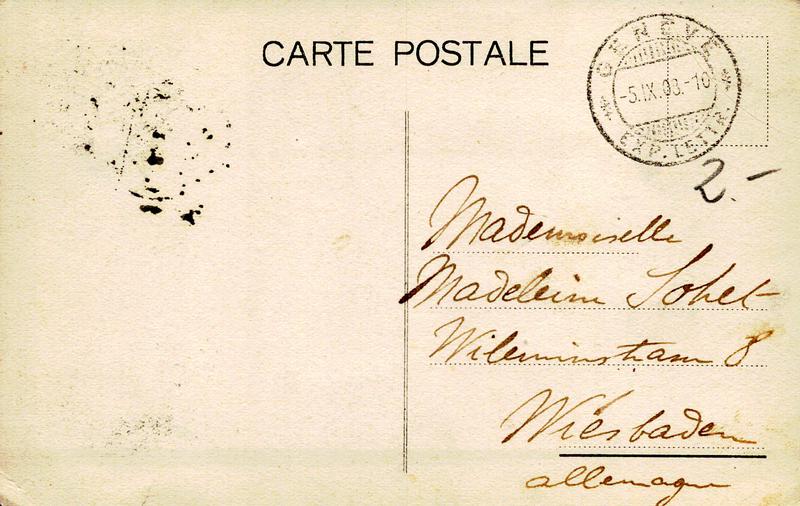 CARTE POSTALE
GENÈVE
-5.IX.08.-10
EXP. LETTR.
2.-
Mademoiselle
Madeleine Sohet
8
Wiesbaden
allemagne